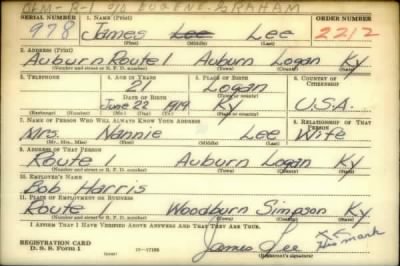 R-1 c/o EUGENE GRAHAM
SERIAL NUMBER 1. NAME (Print) ORDER NUMBER
978 James Lee Lee 2212
(First) (Middle) (Last)
2. ADDRESS (Print)
Auburn Route 1 Auburn Logan Ky
(Number and street or R. F. D. number) (Town) (County) (State)
3. TELEPHONE 4. AGE IN YEARS 5. PLACE OF BIRTH 6. COUNTRY OF CITIZENSHIP
21 Logan
DATE OF BIRTH (Town or county)
June 22 1919 Ky U.S.A.
(Exchange) (Number) (Mo.) (Day) (Yr.) (State or country)
7. NAME OF PERSON WHO WILL ALWAYS KNOW YOUR ADDRESS 8. RELATIONSHIP OF THAT PERSON
Mrs. Nannie Lee Wife
(Mr., Mrs., Miss) (First) (Middle) (Last)
9. ADDRESS OF THAT PERSON
Route 1 Auburn Logan Ky
(Number and street or R. F. D. number) (Town) (County) (State)
10. EMPLOYER'S NAME
Bob Harris
11. PLACE OF EMPLOYMENT OR BUSINESS
Route Woodburn Simpson Ky.
(Number and street or R. F. D. number) (Town) (County) (State)
I AFFIRM THAT I HAVE VERIFIED ABOVE ANSWERS AND THAT THEY ARE TRUE.
REGISTRATION CARD James Lee His mark
D. S. S. Form 1 (Registrant's signature)